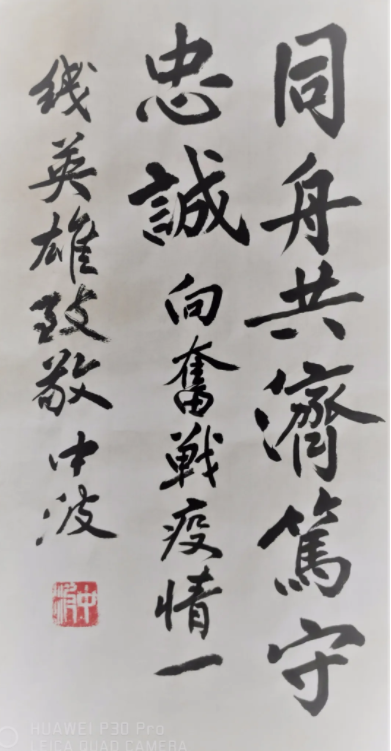 同舟共濟篤守
忠誠向奮戰疫情一
线英雄致敬中波
中波
HUAWEI P30 Pro
LEICA QUAD CAMERA